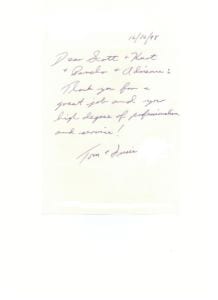 12/16/98
Dear Scott + Kurt
+ Pamela + Adrienne:
Thank you for a
great job and your
high degree of professionalism
and service!
Tom +